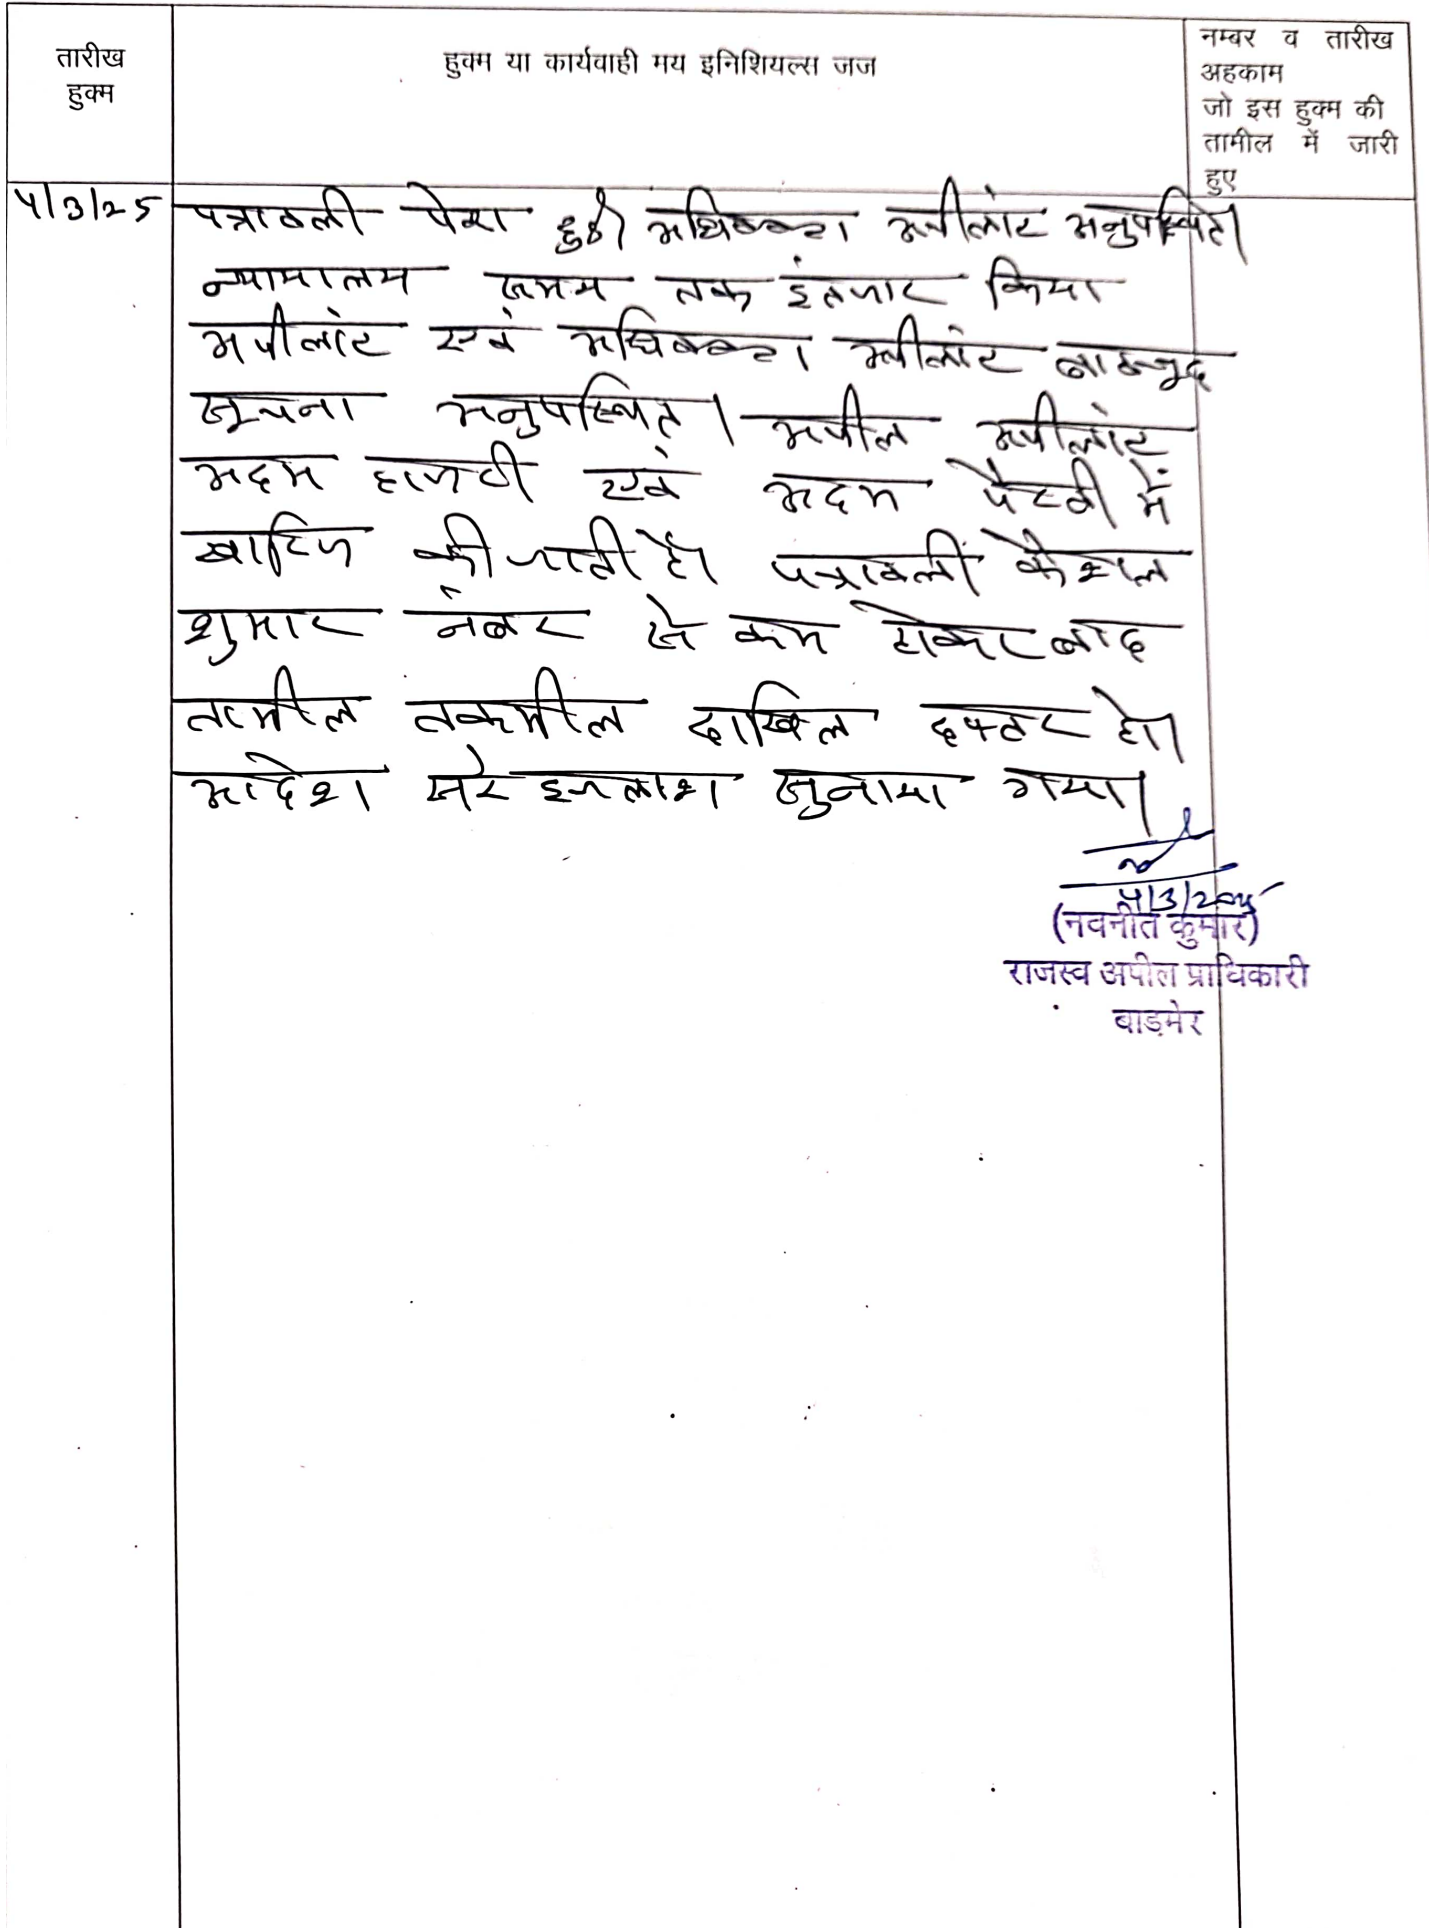 तारीख
हुक्म
हुक्म या कार्यवाही मय इनिशियल्स जज
नम्बर व तारीख
अहकाम
जो इस हुक्म की
तामील में जारी
हुए
4/3/25
पत्रावली पेश हुई। अधिवक्ता अपीलांट अनुपस्थित।
न्यायालय समय तक इंतजार किया
अपीलांट एवं अधिवक्ता अपीलांट बावजूद
सूचना अनुपस्थित। अपील अपीलांट
अदम हाजरी एवं अदम पैरवी में
खारिज की जाती है। पत्रावली फैशल
शुमार नंबर से कम होकर बाद
तामील तकमील दाखिल दफ्तर हो।
आदेश सरे इजलाश सुनाया गया।
4/3/2025
(नवनीत कुमार)
राजस्व अपील प्राधिकारी
बाड़मेर